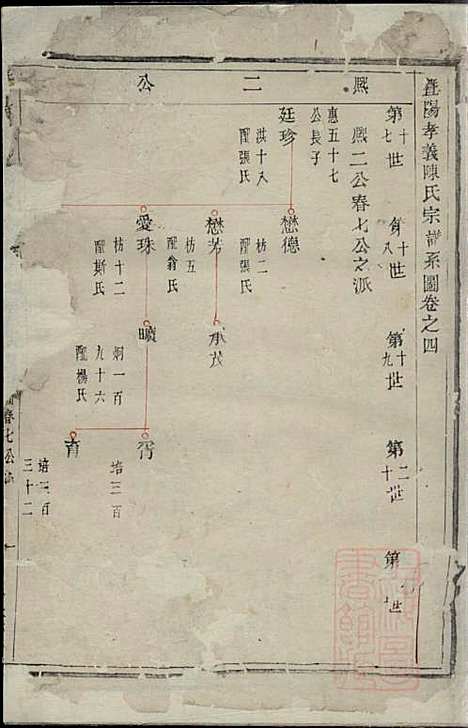 暨陽孝義陳氏宗譜系圖卷之四
熙二公
第十七世
第十八世
第十九世
第二十世
第
世
熙二公春七公之派
惠五十七
公長子
廷珍
洪十八
配張氏
懋德
枋二
配張氏
懋芳
枋五
配翁氏
承茂
愛珠
枋十二
配斯氏
曠
炯一百
九十六
配楊氏
胥
培三百
育
培三百
三十二
春七公派
一